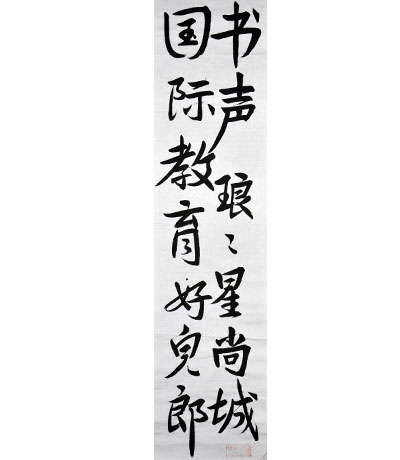 书声琅〻星尚城
国际教育好儿郎